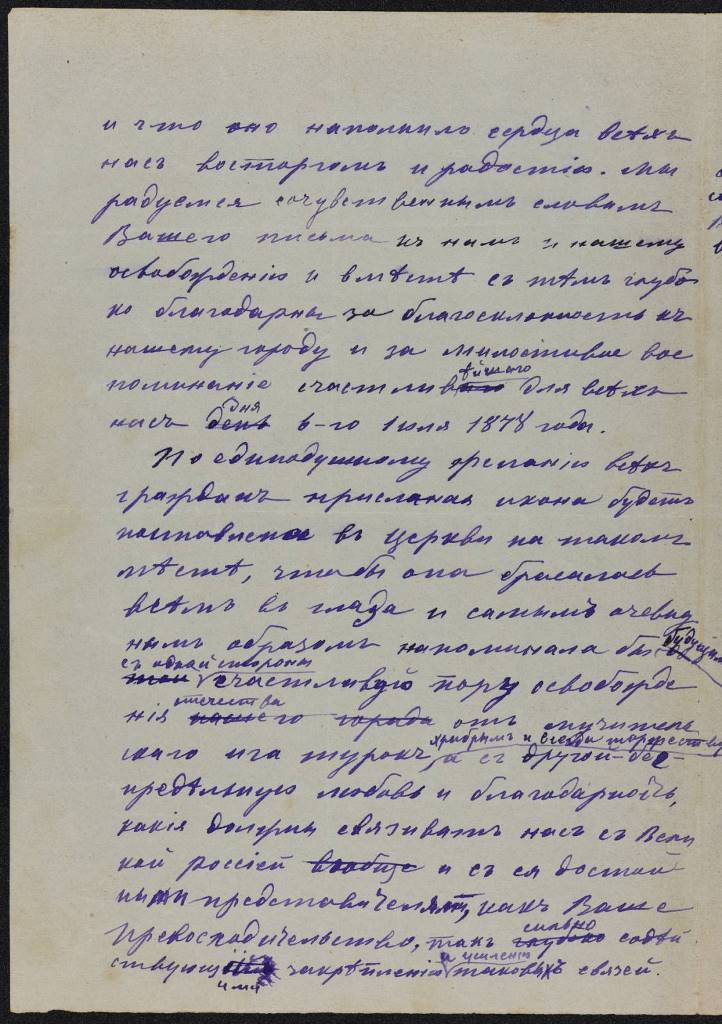 и что оно наполнило сердца всѣхъ
насъ восторгомъ и радостію. Мы
радуемся сочувственнымъ словамъ
Вашего письма къ намъ и нашему
освобожденію и вмѣстѣ съ тѣмъ глубо
ко благодарны за благосклонность къ
нашему городу и за милостивое вос
поминаніе счастливѣйшаго для всѣхъ
насъ день дня 6-го Іюля 1878 года.
По единодушному желанію всѣхъ
гражданъ присланая икона будетъ
поставлена въ церкви на такомъ
мѣстѣ, чтобы она бросалась
всѣмъ въ глаза и самымъ очевид
нымъ образомъ напоминала бы будущимъ
съ одной стороны
счастливую пору освобожде
нія отечества нашего города отъ мучитель
скаго ига турокъ,
храбрымъ и всегда
а съ другой - без-
предѣльную любовь и благодарность,
какія должны связывать насъ съ Вели
кой россіей вообще и съ ея достой
ными представителями, какъ Ваше
Превосходительство, такъ сильно глубоко содѣй
ствующими закрѣпленію и усиленію таковыхъ связей.